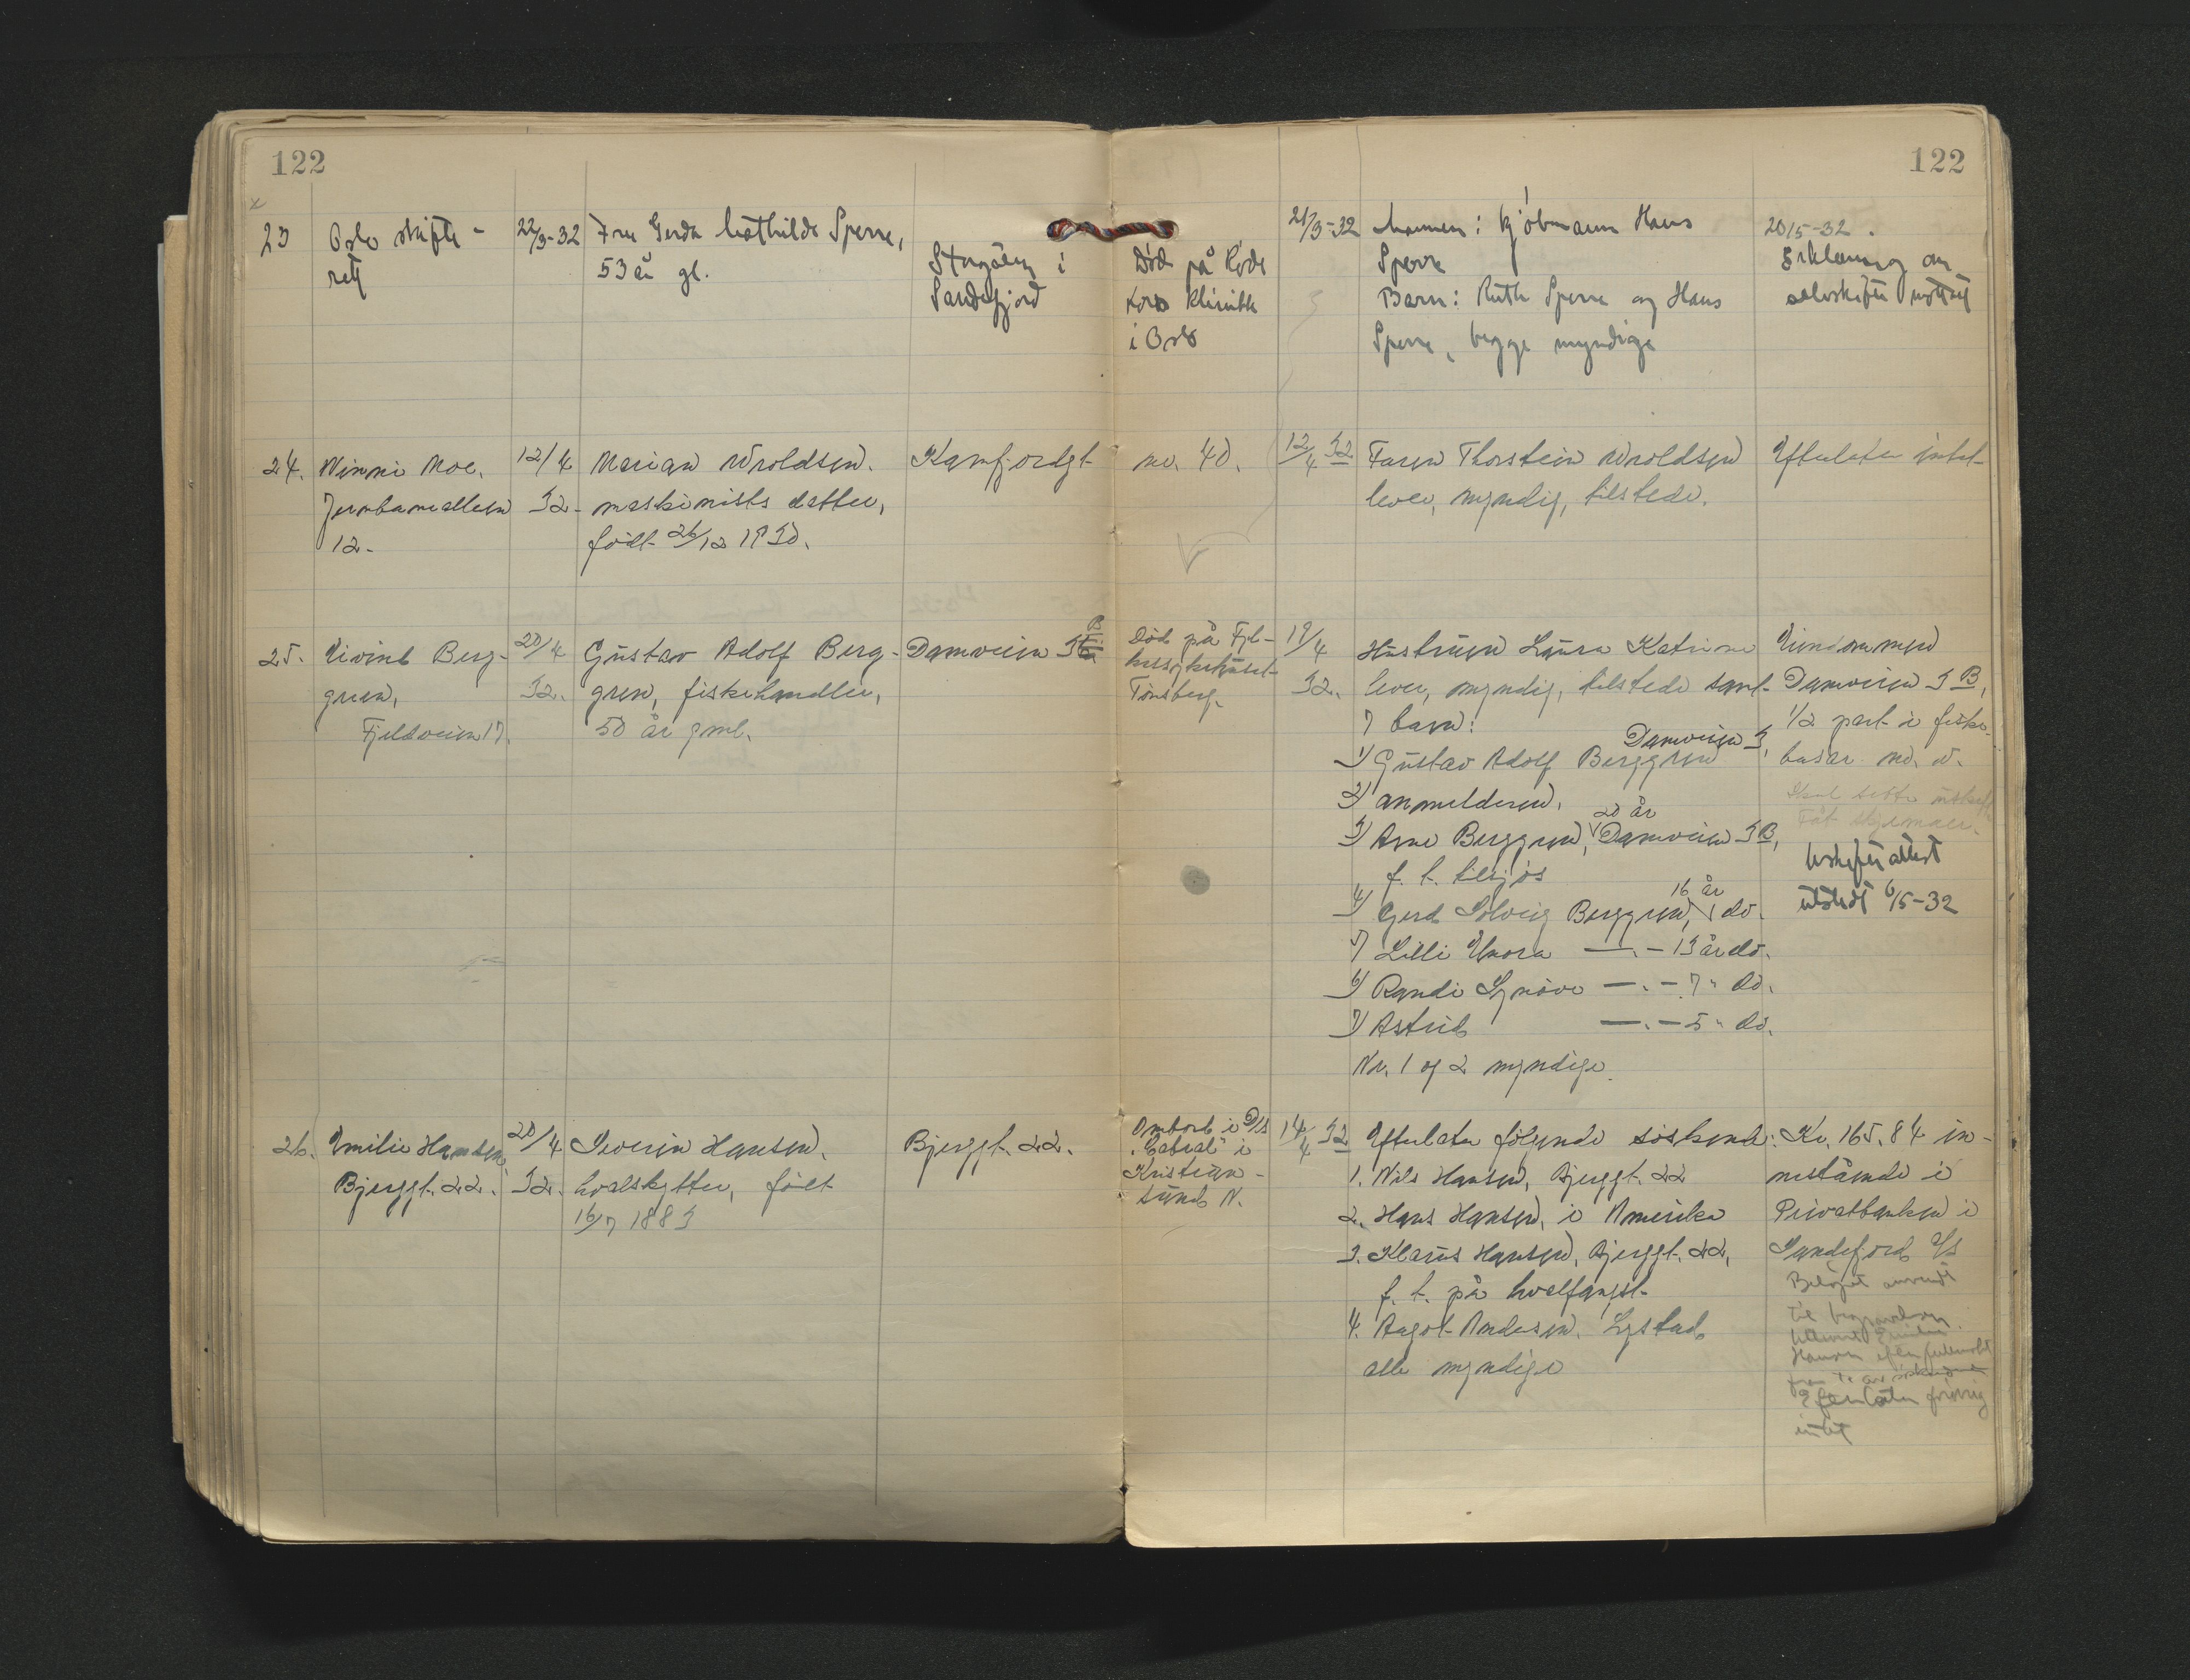 122
122
23 Oslo skifte- 22/3-32 Fru Gerda Mathilde Sperre, 21/3-32 Mannen: Kjøbmann Hans 20/5-32.
rett 53 år gl. Storgaten i Død på Røde Sperre Erklæring om
Sandefjord Kors Klinikk Barn: Ruth Sperre og Hans selvskifte mottatt
i Oslo Sperre, begge myndige
24. Winni Moe, 12/4 Marian Wroldsen. Kamfjordgt. no. 40. 12/4 32 Faren Thorstein Wroldsen Efterlater intet
Jernbanealleen 32- maskinists datter, lever, myndig, tilstede.
12- født 26/12 1930.
25. Eivind Berg- 20/4 Gustav Adolf Berg- Damveien 3 B Død på Fyl- 19/4 Hustruen Laura Katrine Eiendommen
gren, 32. gren, fiskehandler, kessykehuset 32. lever, myndig, tilstede samt Damveien 3 B,
Fjeldveien 17. 50 år gml. Tønsberg. 7 barn: 1/2 part i fiske-
1) Gustav Adolf Berggren Damveien 3, basar no. 5.
2) anmelderen.
3) Arne Berggren, 20 år Damveien 3 B, Uskifteattest
f. t. tilsjøs utstedt 6/5-32
4) Gerd Solveig Berggren, 16 år do.
5) Lilli Enora —.— 13 år do.
6) Randi Synøve —.— 7 " do.
7) Astrid —.— 5 " do.
Nr. 1 og 2 myndige.
26. Emilie Hansen 20/4 Severin Hansen. Bjerggt. 22. Ombord i D/S 14/4 32 Efterlater følgende søskende: Kr. 165.84 in-
Bjerggt. 22. 32. hvalskytter, født "Cabral" i 1. Nils Hansen, Bjerggt. 22 nestående i
16/7 1883 Kristian- 2. Hans Hansen, i Amerika Privatbanken i
sund N. 3. Klarus Hansen, Bjerggt. 22, Sandefjord A/S
f. t. på hvalfangst. Beløpet anvendt
4. Aagot Andersen, Lystad til begravelsen.
alle myndige Utlevert Emilie
Hansen efter fullmakt
fra de søskend
Efterlater forøvrig
intet